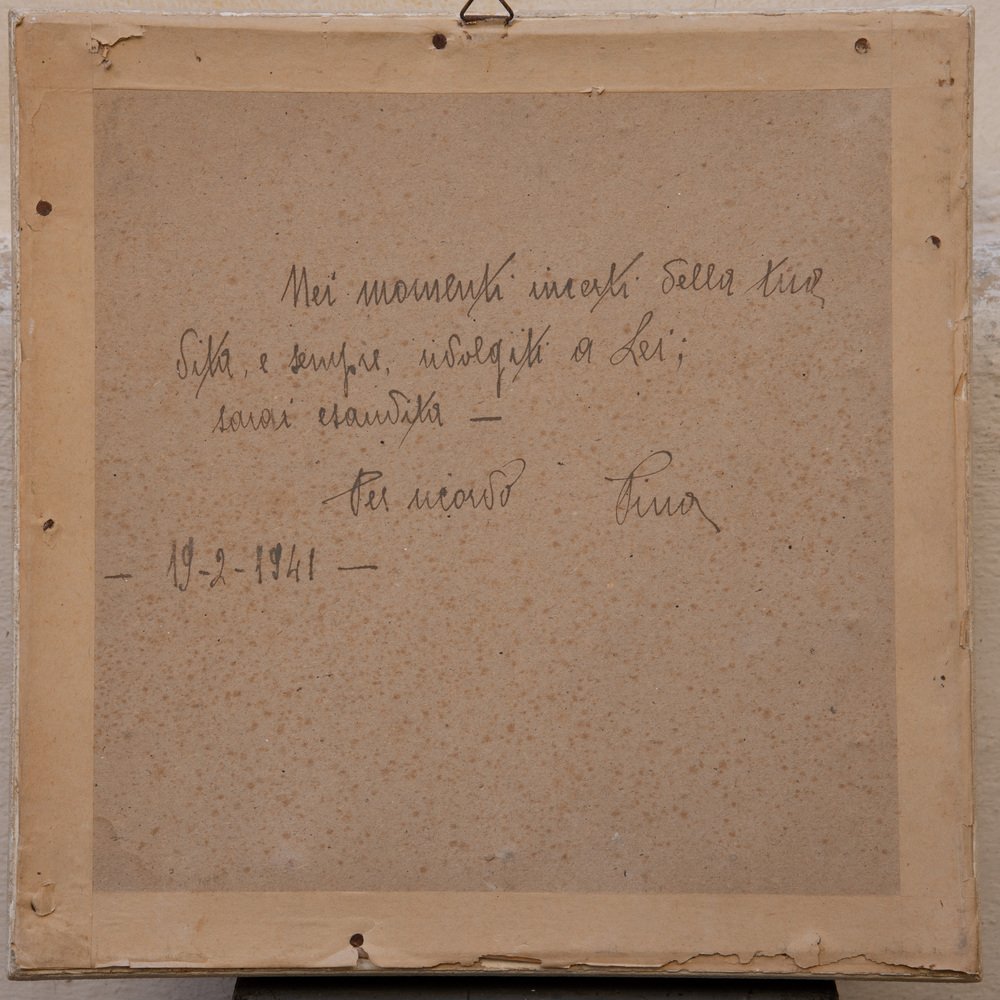 Nei momenti incerti della tua
vita, e sempre, rivolgiti a Lei;
sarai esaudita —
Per ricordo Pina
— 19-2-1941 —